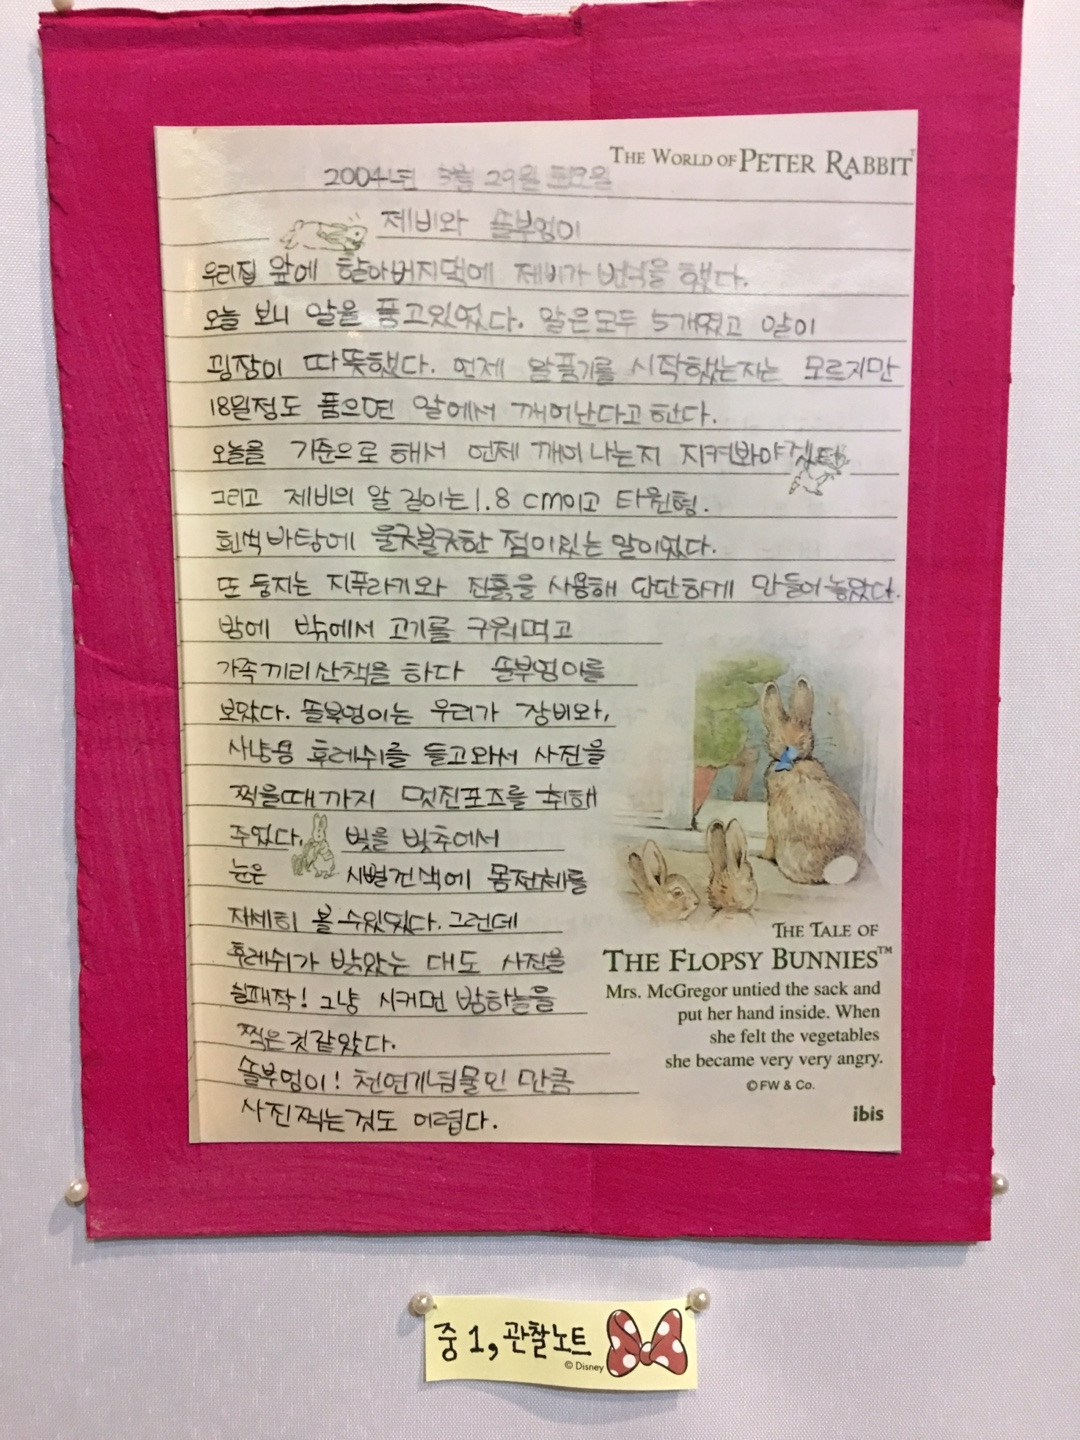 THE WORLD OF PETER RABBIT
2004년 5월 29일 토요일
제비와 쏠부엉이
우리집 앞에 할아버지댁에 제비가 번식을 했다.
오늘 보니 알을 품고있었다. 알은모두 5개였고 알이
굉장이 따뜻했다. 언제 알품기를 시작했는지는 모르지만
18일정도 품으면 알에서 깨어난다고 한다.
오늘을 기준으로 해서 언제 깨어나는지 지켜봐야겠다.
그리고 제비의 알 길이는 1.8cm이고 타원형.
흰색바탕에 울긋불긋한 점이있는 알이었다.
또 둥지는 지푸라기와 진흙을 사용해 단단하게 만들어놓았다.
밤에 밖에서 고기를 구워먹고
가족끼리산책을 하다 쏠부엉이를
보았다. 쏠부엉이는 우리가 장비와,
사냥용 후레쉬를 들고와서 사진을
찍을때까지 멋진포즈를 취해
주었다. 빛을 빛추어서
눈은 시뻘건색에 몸전체를
자세히 볼 수있었다. 그런데
후레쉬가 밝았는 대도 사진을
실패작! 그냥 시커먼 밤하늘을
찍은것같았다.
쏠부엉이! 천연기념물인 만큼
사진찍는것도 어렵다.
THE TALE OF
THE FLOPSY BUNNIES™
Mrs. McGregor untied the sack and
put her hand inside. When
she felt the vegetables
she became very very angry.
©FW & Co.
ibis
중1, 관찰노트
© Disney